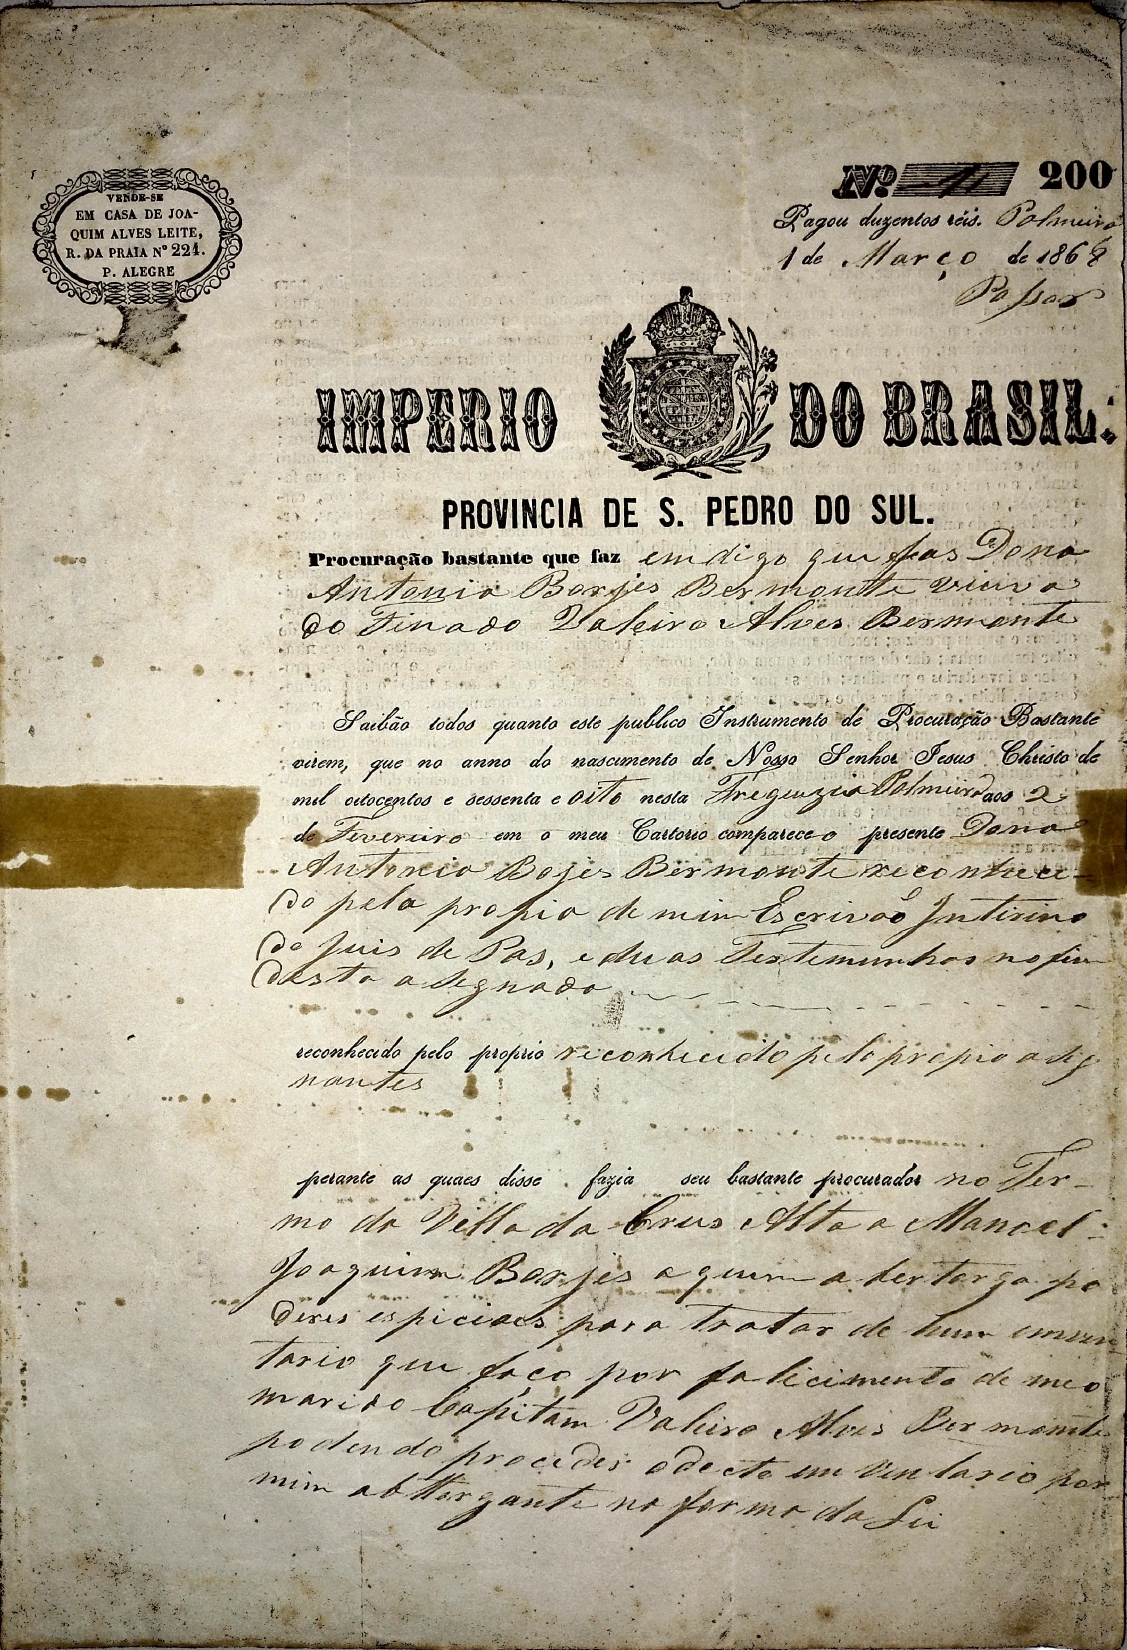 VENDE-SE
EM CASA DE JOA-
QUIM ALVES LEITE,
R. DA PRAIA Nº 224.
P. ALEGRE
Nº 200
Pagou duzentos réis. Palmeira
1 de Março de 1868
Passos
IMPERIO DO BRASIL.
PROVINCIA DE S. PEDRO DO SUL.
Procuração bastante que faz em digo que fas Dona
Antonia Borjes Bermonte viuva
do Finado Valeiro Alves Bermonte
Saibão todos quanto este publico Instrumento de Procuração Bastante
virem, que no anno do nascimento de Nosso Senhor Jesus Christo de
mil oitocentos e sessenta e oito nesta Freguzia Palmeira aos 2
de Fevereiro em o meu Cartorio compareceo presente Dona
Antonia Bojes Bermonte reconheci-
do pela propia de mim Escrivaõ Intirino
do Juis de Pas, e duas Testemunhas no fin
desta a segnado
reconhecido pelo proprio reconhecido pelo propio a sig
nantes
perante as quaes disse fazia seu bastante procurador no Ter-
mo da Villa da Crus Alta a Manoel
Joaquim Borjes a quem po
deres espiciaes para tratar de hum
tario que faço por falicimento de meo
marido Capitam Valeiro Alves Bermonte
podendo proceder em ventario por
mim na forma da Lei